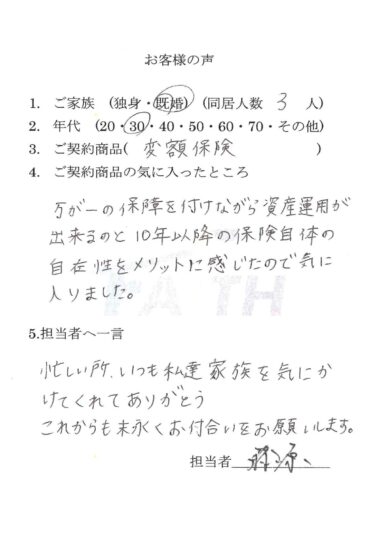 お客様の声
1. ご家族 (独身・既婚) (同居人数 3 人)
2. 年代 (20・30・40・50・60・70・その他)
3. ご契約商品( 変額保険 )
4. ご契約商品の気に入ったところ
万が一の保障を付けながら資産運用が
出来るのと10年以降の保険自体の
自在性をメリットに感じたので気に
入りました。
5.担当者へ一言
忙しい所、いつも私達家族を気にか
けてくれてありがとう
これからも末永くお付合いをお願いします。
担当者